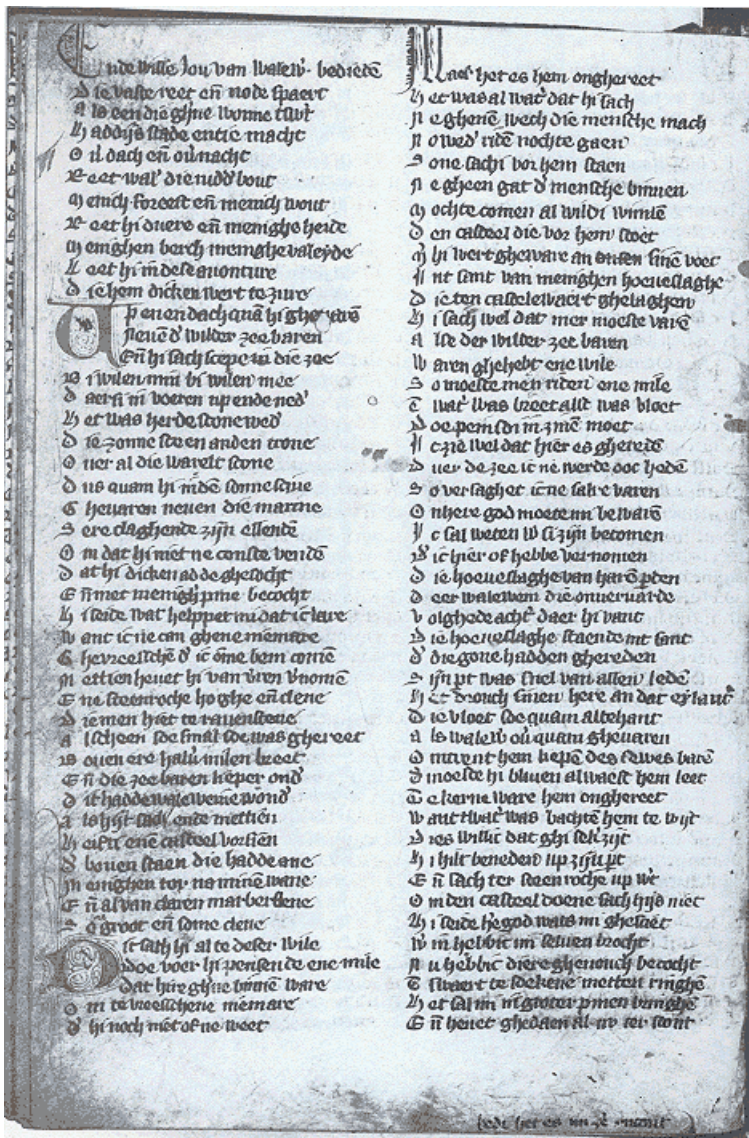 Ende wille Jou van walew' bedieden
Die vaste reet eñ node spaert
Als een die ghine wonne twt
Haddijs stade entie macht
Ou' dach eñ ou' nacht
Reet wal' die ridd' bout
Menich foreest eñ menich wout
Reet hi duere eñ menighe heide
Menighen berch menighe valeyde
Leet hi in dese auonture
Die hem dicken wert te zure
Up enen dach quā hi ghevarē
Neuen d' wilder zee baren
Eñ hi sach scepe in die zee
Bi wilen min bi wilen mee
Daer si in voeren up ende ned'
Het was herde scone wed'
Die zonne steen anden trone
Ouer al die warelt scone
Dus quam hi inden sonne scine
Gheuaren neuen die marine
Sere claghende zijn ellende
Om dat hi niet ne conste venden
Dat hi dicken adde ghesocht
Eñ met menigh pine becocht
Hi seide wat helppet mi dat ic lare
Want ic ne can ghene niemare
Ghevreeischē d' ic ōme bem comē
Mettien heuet hi van v'ren v'nomē
Ene steenroche hoghe eñ clene
Die men hiet te rauenstene
Alscheen soe smal soe was ghereet
Bouen ere halu' milen breet
Eñ die zee baren liepen ond'
Dit hadde waleweine wond'
Als hijt sach ende mettien
Heift enē casteel vorsien
D' bouen staen die hadde ane
Menighen tor na minē wane
Eñ al van claren marberstene
So groot eñ some clene
Dit sach hi al te deser wile
Doe voer hi pensende ene mile
Dat hire ghine binnē ware
Om te vreeschene niemare
D' hi noch niet of ne weet
Maer het es hem onghereet
Het was al wat' dat hi sach
Ne ghenē wech die mensche mach
No wed' ridē nochte gaen
Sone sachi vor hem staen
Ne gheen gat d' mensche binnen
Mochte comen al wildi winnē
Den casteel die vor hem stoet
Mi hi wert gheware an sinē voet
Int sant van menighen hoeueslaghe
Die ten castelewaert ghelaghen
Hi sach wel dat mer moeste varē
Alse der wilter zee baren
Waren ghehebt ene wile
So moeste men riden ene mile
T wat' was breet alst was vloet
Doe peinsdi in zinē moet
Ic zie wel dat hier es gheredē
Duer de zee ic ne werde ooc heden
So versaghet ic ne salre varen
Onhere god moete mi bewarē
Ic sal weten w' si zijn becomen
D' ic hier of hebbe vernomen
Die hoeueslaghe van harē perden
Deer walewein die onuervarde
Volghede acht' daer hi vant
Die hoeueslaghe staende int sant
D' die gone hadden ghereden
Sijn pt was snel van allen leden
Het drouch sinen here an dat eylant
Die vloet soe quam altehant
Als walew' ou' quam gheuaren
Omtrent hem liepē des sewes barē
D' moeste hi bliuen al waest hem leet
Te kerne ware hem onghereet
Want twat' was bachtē hem te wijt
Dies willic dat ghi seker zijt
Hi hilt beneden up zijn pt
Eñ sach ter steenroche up wt
Om den casteel doene sach hijs niet
Hi seide h'e god wats mi ghesciet
W' in hebbic mi seluen brocht
Nu hebbic diere ghenouch becocht
T swaert te soekene metten ringhē
Het sal mi in groter pinen bringhē
Eñ heuet ghedaen al nv ter stont